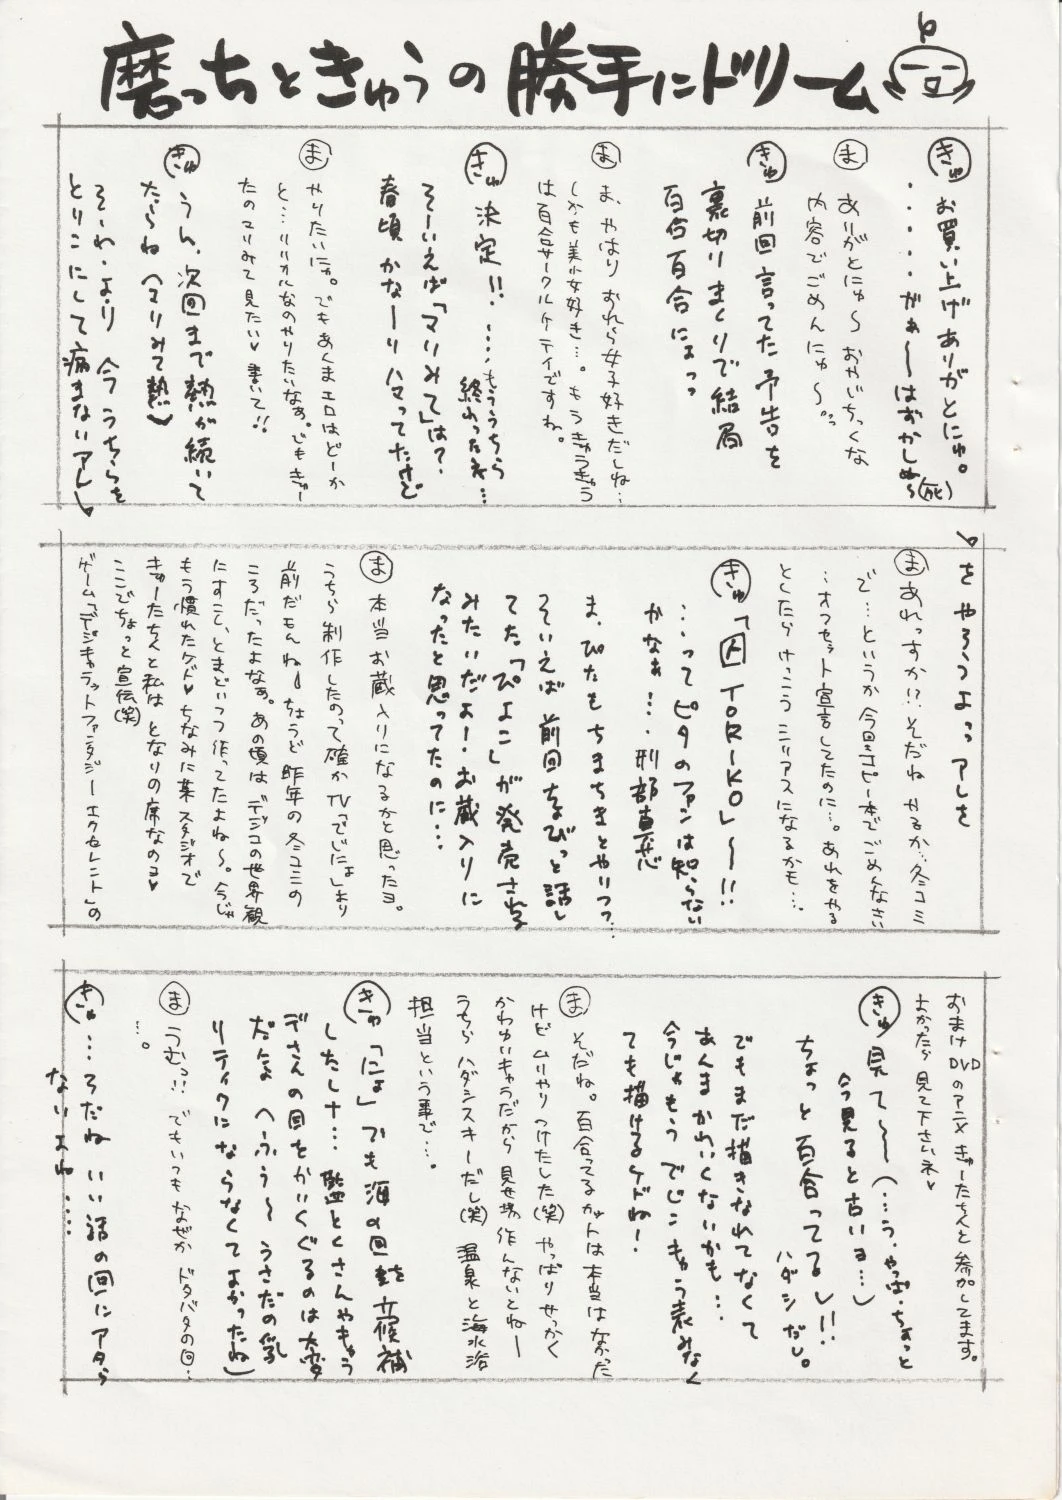 磨っちときゅうの勝手にドリーム
きゅ お買い上げありがとにゅ。
・・・・がぁ〜はずかしぬ〜(死)
ま ありがとにゅ〜 おやいちっくな
内容でごめんにゅ〜。
きゅ 前回言ってた予告を
裏切りまくりで結局
百合百合にょっ
ま ま、やはり おれら女子好きだしね…
しかも美少女好き…。もうきゅうきゅう
は百合サークルケテイですね。
きゅ 決定!!…もううちら
終わったネ…
そーいえば「マリみて」は?、
春頃かなーりハマってたけど
ま やりたいにゃ。でもあくまエロはどーか
と…リリカルなのやりたいなぁ。でもきゅー
たのマリみて見たい♥ 書いて!!
きゅ うん、次回まで熱が続いて
たらね(マリみて熱)
そーれ・より 今うちらを
とりこにして病まないアレ
をやろうよっっ アレを
ま あれっすか!?そだね やるか…冬コミ
で…というか今回コピー本でごめんなさい
…オフセット宣言してたのに…。あれをやる
としたら けっこうシリアスになるかも…。
きゅ「囚 TORIKO」〜!!
…ってピタのファンは知らない
かなぁ…刑部真芯
ま、ぴたもちまちまとやりつつ…
そいえば前回ちょびっと話し
てた「ぴよこ」が発売される
みたいだよー・お蔵入りに
なったと思ってたのに…
ま 本当お蔵入りになるかと思ったヨ。
うちら制作したのって確かTV「でじにょ」より
前だもんねー ちょうど昨年の冬コミの
ころだったよなぁ。あの頃はデジコの世界観
にすごく、とまどいつつ作ってたよね〜。今じゃ
もう慣れたケド♥ ちなみに某スタジオで
きゅーたちんと私は となりの席なのョ♥
ここでちょっと宣伝(笑)
ゲーム「デジキャラットファンタジー エクセレント」の
おまけDVDのアニメ きゅーたちんと参加してます。
よかったら見て下さいネ♥
きゅ 見て〜(…う・やっぱ・ちょっと
今見ると古いョ…)
ちょっと百合ってるし!!
ハダシだし。
でもまだ描きなれてなくて
あんまかわいくないかも…
今じゃもうでじこキャラ表みなく
ても描けるケドねー
ま そだね。百合ってるカットは本当はなかった
けどムリやりつけたした(笑)やっぱりせっかく
かわゆいキャラだから 見せ場作んないとねー
うちら ハダシスキーだし(笑) 温泉と海水浴
担当という事で…。
きゅ「にょ」でも海の回を立候補
したしナ…監とくさんやキャラ
デさんの目をかいくぐるのは大変
だにょ(ふぅ〜 うさだの乳
リティクにならなくてよかったね)
ま うむっ!! でもいつも なぜかドタバタの回…
…。
きゅ …そだね いい話の回にアタら
ないよね……